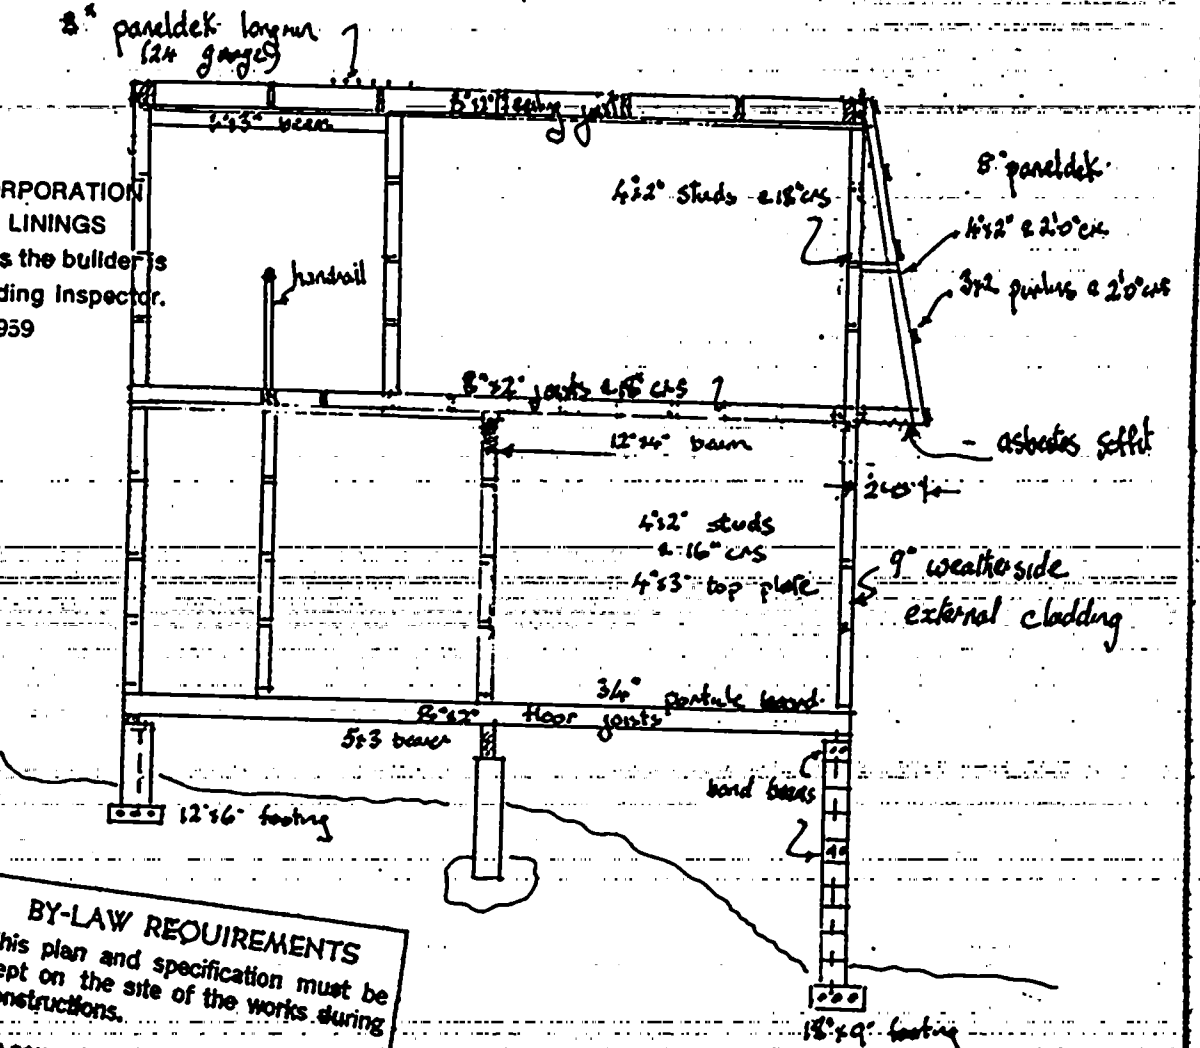 8" paneldek longrun
(24 gauge)
8"x2" ceiling joists
x3" beam
RPORATION
LININGS
s the builder is
ding Inspector.
959
4"x2" studs @ 18" crs
8" paneldek
4"x2" @ 2'0" crs
3x2 purlins @ 2'0" crs
handrail
8"x2" joists @ 18" crs
12"x4" beam
- asbestos soffit
4"x2" studs
@ 16" crs
4"x3" top plate
9" weatherside
external cladding
3/4" particle board
8"x2" floor joists
5x3 bearer
bond beams
12"x6" footing
18"x9" footing
BY-LAW REQUIREMENTS
his plan and specification must be
ept on the site of the works during
onstructions.